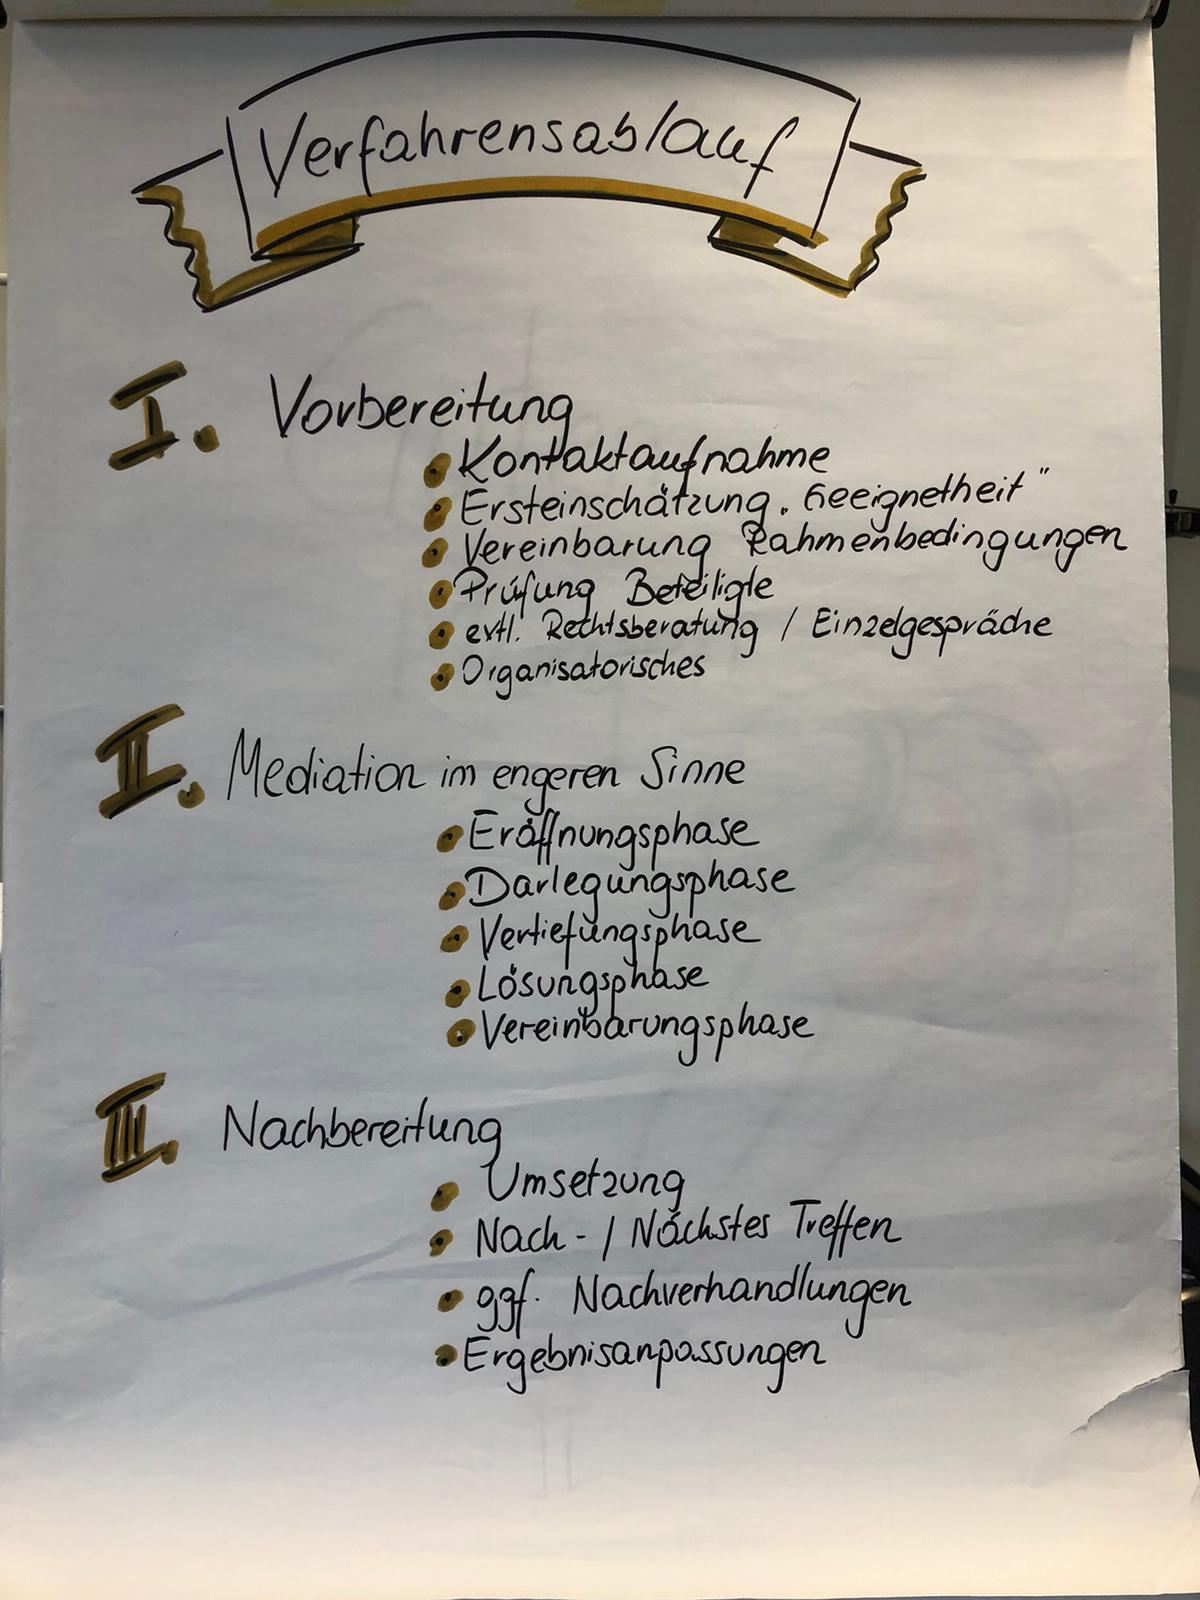 Verfahrensablauf
I. Vorbereitung
• Kontaktaufnahme
• Ersteinschätzung „Geeignetheit“
• Vereinbarung Rahmenbedingungen
• Prüfung Beteiligte
• extl. Rechtsberatung / Einzelgespräche
• Organisatorisches
II. Mediation im engeren Sinne
• Eröffnungsphase
• Darlegungsphase
• Vertiefungsphase
• Lösungsphase
• Vereinbarungsphase
III. Nachbereitung
• Umsetzung
• Nach- / Nächstes Treffen
• ggf. Nachverhandlungen
• Ergebnisanpassungen